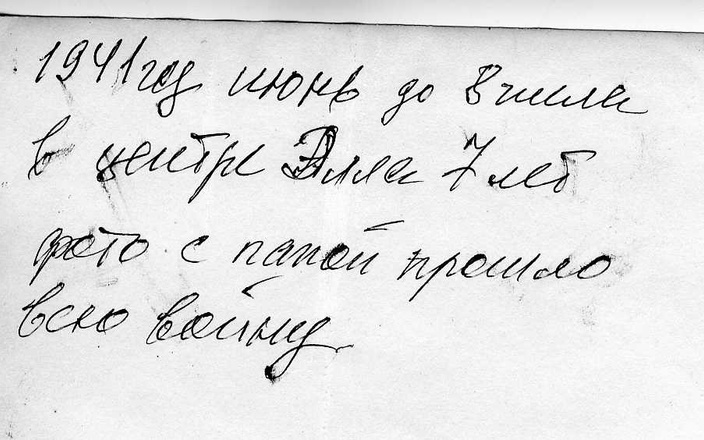 1941 год июнь до 8 числа
в центре Элла 7 лет
фото с папой прошло
всю войну